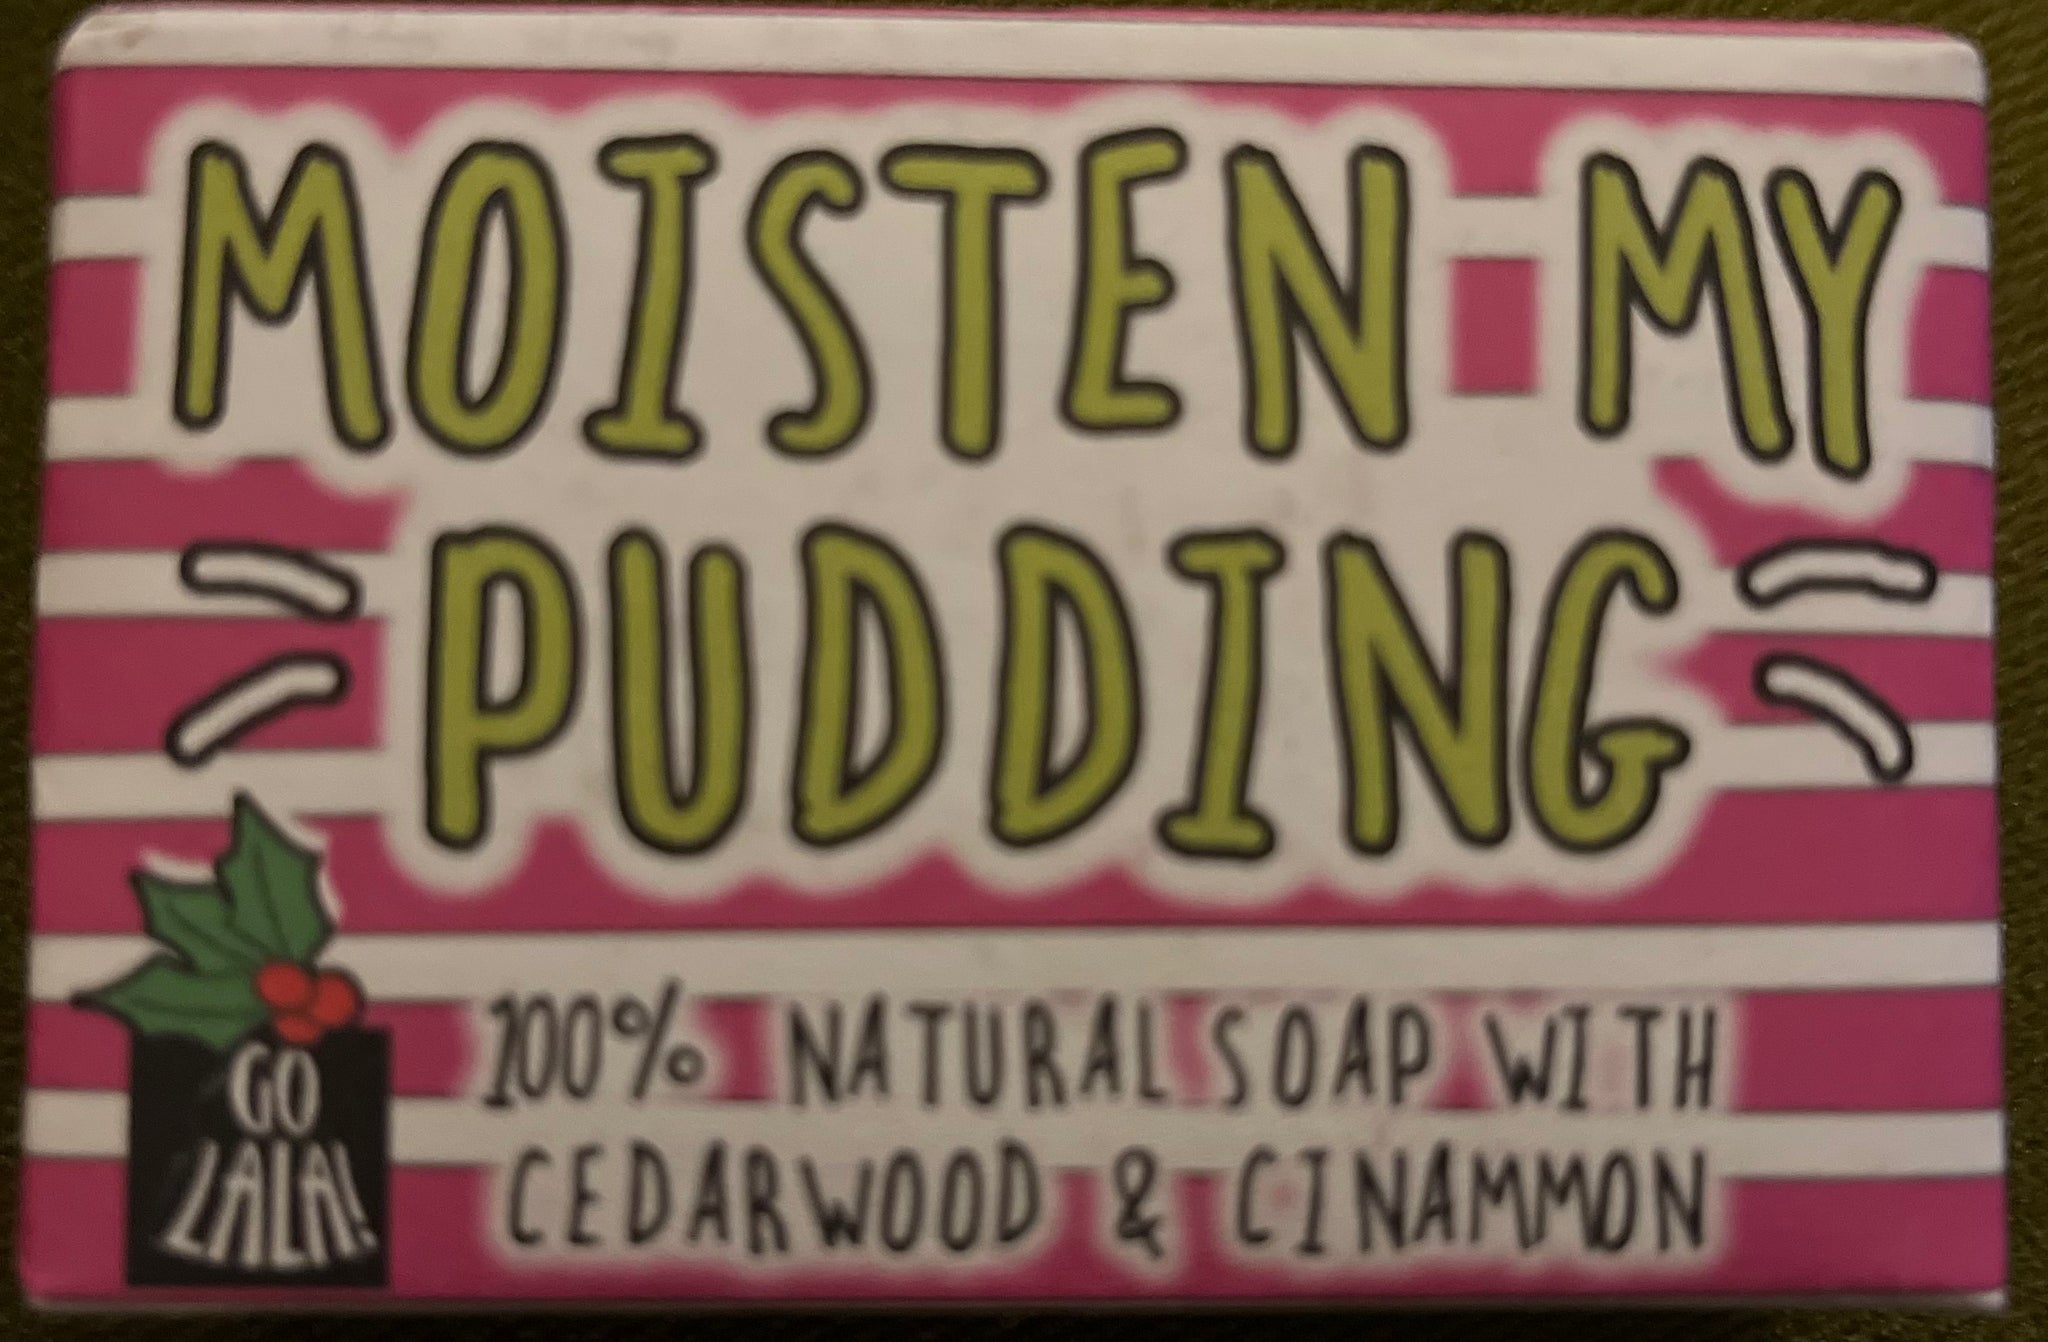 MOISTEN MY
PUDDING
100% NATURAL SOAP WITH
CEDARWOOD & CINAMMON
GO
LALA!